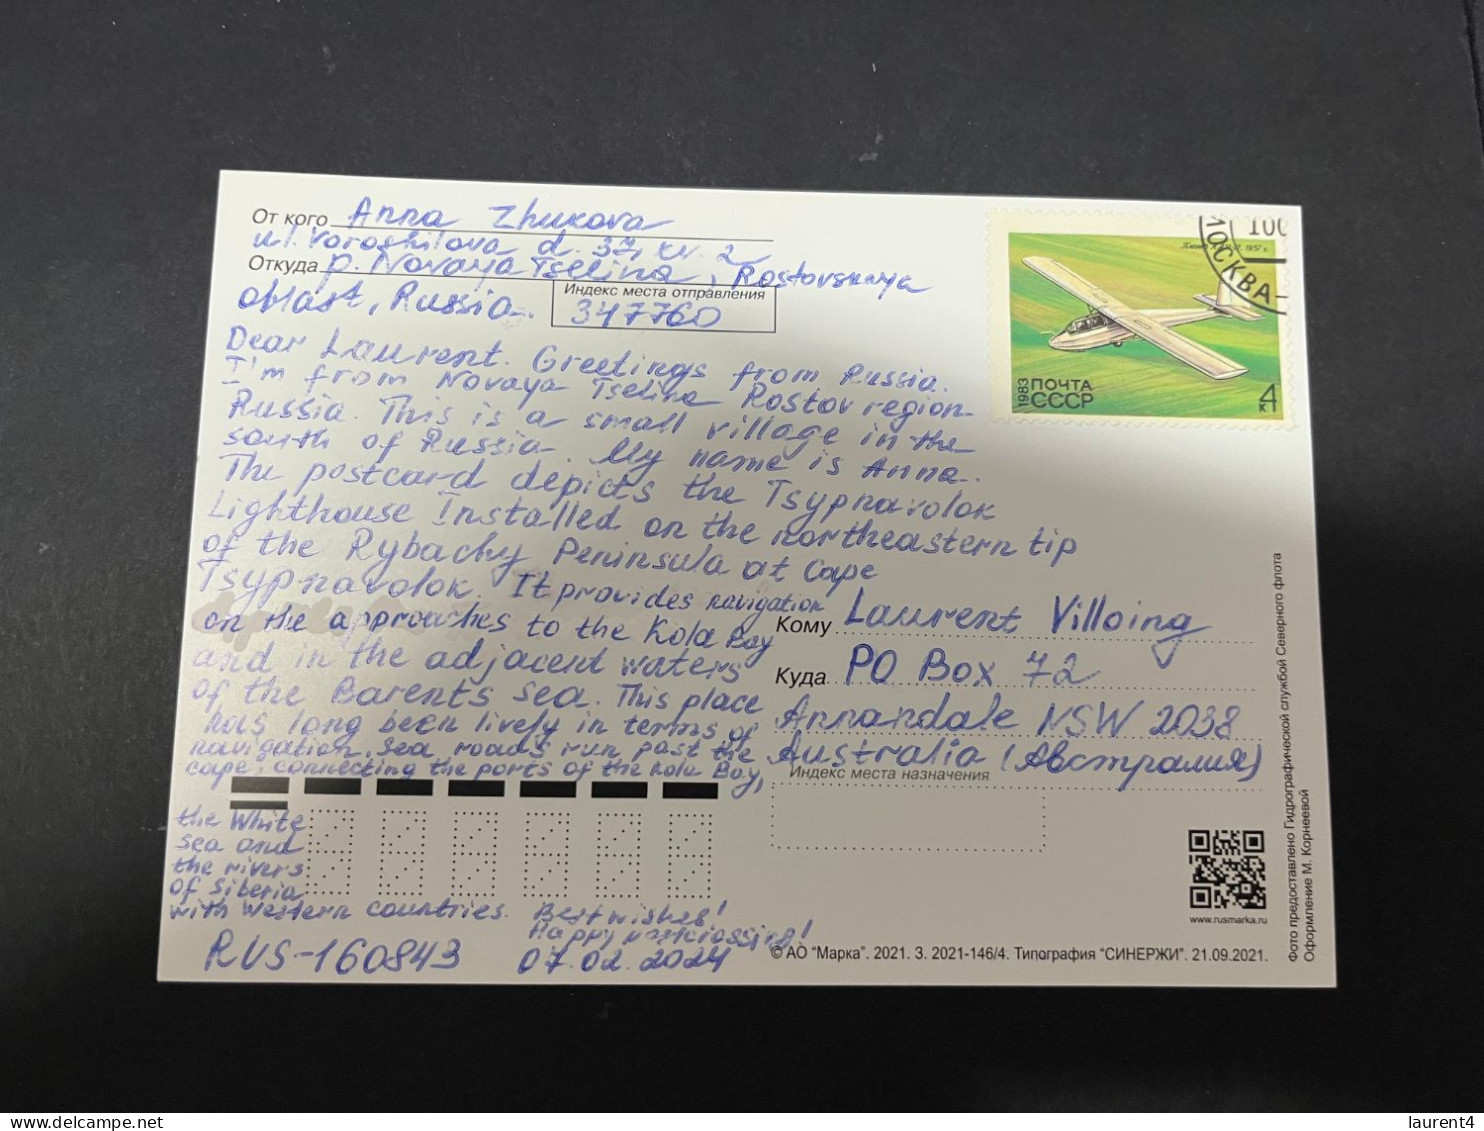 От кого Anna Zhukova
ul. Voroshilova d. 37, kv. 2
Откуда p. Novaya Tselina, Rostovskaya
oblast, Russia.
Индекс места отправления
347760
Dear Laurent. Greetings from Russia.
I'm from Novaya Tselina Rostov region
Russia. This is a small village in the
south of Russia. My name is Anna.
The postcard depicts the Tsypnavolok
Lighthouse Installed on the northeastern tip
of the Rybachy Peninsula at Cape
Tsypnavolok. It provides navigation
on the approaches to the Kola Bay
and in the adjacent waters
of the Barents sea. This place
has long been lively in terms of
navigation. Sea roads run past the
cape, connecting the ports of the Kola Bay,
the White
sea and
the rivers
of Siberia
with western countries. Best wishes!
Happy postcrossing!
RUS-160843 07.02.2024
1983 ПОЧТА
СССР
4
к
1957 г.
100
МОСКВА
Кому Laurent Villoing
Куда PO Box 72
Annandale NSW 2038
Australia (Австралия)
Индекс места назначения
www.rusmarka.ru
© АО "Марка". 2021. З. 2021-146/4. Типография "СИНЕРЖИ". 21.09.2021.
Фото предоставлено Гидрографической службой Северного флота
Оформление М. Корнеевой
delcampe.net
laurent4